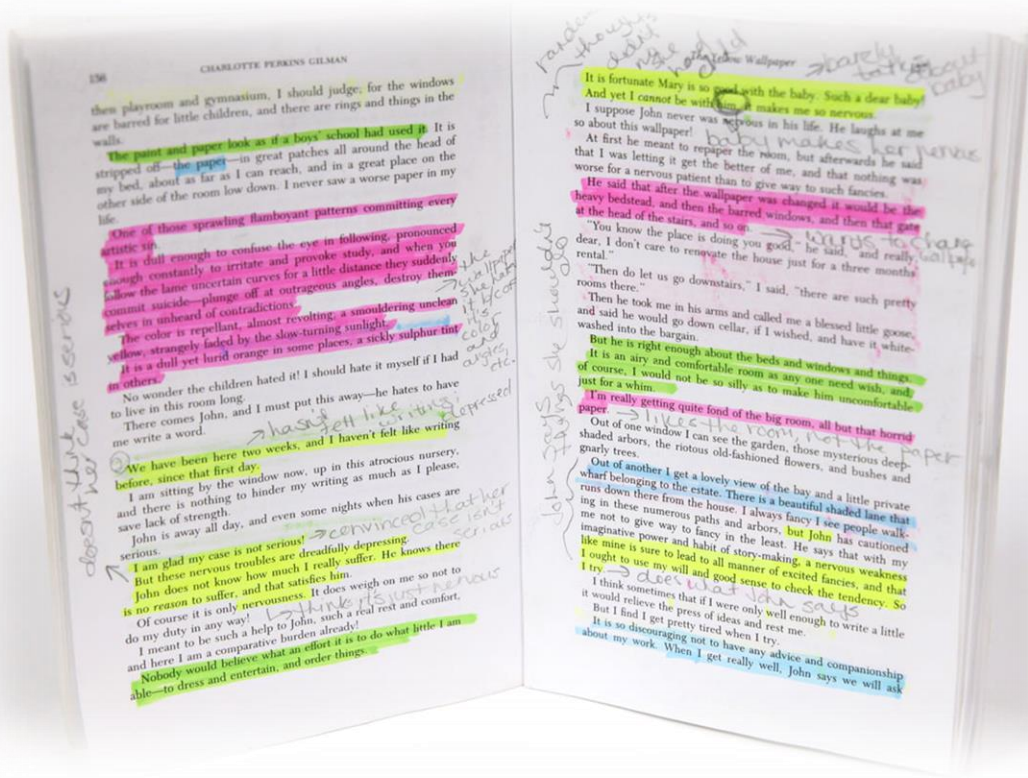 156
CHARLOTTE PERKINS GILMAN
then playroom and gymnasium, I should judge; for the windows
are barred for little children, and there are rings and things in the
walls.
The paint and paper look as if a boys' school had used it. It is
stripped off—the paper—in great patches all around the head of
my bed, about as far as I can reach, and in a great place on the
other side of the room low down. I never saw a worse paper in my
life.
One of those sprawling flamboyant patterns committing every
artistic sin.
It is dull enough to confuse the eye in following, pronounced
enough constantly to irritate and provoke study, and when you
follow the lame uncertain curves for a little distance they suddenly
commit suicide—plunge off at outrageous angles, destroy them
selves in unheard of contradictions.
The color is repellant, almost revolting; a smouldering unclean
yellow, strangely faded by the slow-turning sunlight.
It is a dull yet lurid orange in some places, a sickly sulphur tint
in others.
No wonder the children hated it! I should hate it myself if I had
to live in this room long.
There comes John, and I must put this away—he hates to have
me write a word.
We have been here two weeks, and I haven't felt like writing
before, since that first day.
I am sitting by the window now, up in this atrocious nursery,
and there is nothing to hinder my writing as much as I please,
save lack of strength.
John is away all day, and even some nights when his cases are
serious.
I am glad my case is not serious!
But these nervous troubles are dreadfully depressing.
John does not know how much I really suffer. He knows there
is no reason to suffer, and that satisfies him.
Of course it is only nervousness. It does weigh on me so not to
do my duty in any way!
I meant to be such a help to John, such a real rest and comfort,
and here I am a comparative burden already!
Nobody would believe what an effort it is to do what little I am
able—to dress and entertain, and order things.
doesn't think
her case is serious
the
wallpaper
she hates
it bcos
it's
color
and
angles,
etc.
hasn't
felt like
writing;
depressed
convinced that her
case isn't
serious
think it's just nervous
Yellow Wallpaper
It is fortunate Mary is so good with the baby. Such a dear baby!
And yet I cannot be with him, it makes me so nervous.
I suppose John never was nervous in his life. He laughs at me
so about this wallpaper!
At first he meant to repaper the room, but afterwards he said
that I was letting it get the better of me, and that nothing was
worse for a nervous patient than to give way to such fancies.
He said that after the wallpaper was changed it would be the
heavy bedstead, and then the barred windows, and then that gate
at the head of the stairs, and so on.
"You know the place is doing you good," he said, "and really,
dear, I don't care to renovate the house just for a three months'
rental."
"Then do let us go downstairs," I said, "there are such pretty
rooms there."
Then he took me in his arms and called me a blessed little goose,
and said he would go down cellar, if I wished, and have it white-
washed into the bargain.
But he is right enough about the beds and windows and things.
It is an airy and comfortable room as any one need wish, and,
of course, I would not be so silly as to make him uncomfortable
just for a whim.
I'm really getting quite fond of the big room, all but that horrid
paper.
Out of one window I can see the garden, those mysterious deep-
shaded arbors, the riotous old-fashioned flowers, and bushes and
gnarly trees.
Out of another I get a lovely view of the bay and a little private
wharf belonging to the estate. There is a beautiful shaded lane that
runs down there from the house. I always fancy I see people walk-
ing in these numerous paths and arbors, but John has cautioned
me not to give way to fancy in the least. He says that with my
imaginative power and habit of story-making, a nervous weakness
like mine is sure to lead to all manner of excited fancies, and that
I ought to use my will and good sense to check the tendency. So
I try.
I think sometimes that if I were only well enough to write a little
it would relieve the press of ideas and rest me.
But I find I get pretty tired when I try.
It is so discouraging not to have any advice and companionship
about my work. When I get really well, John says we will ask
random
thought
barely
about
baby
baby makes her nervous
wants to change
wallpaper
likes the room, not the paper
does what John says
John says
things she shouldn't
do